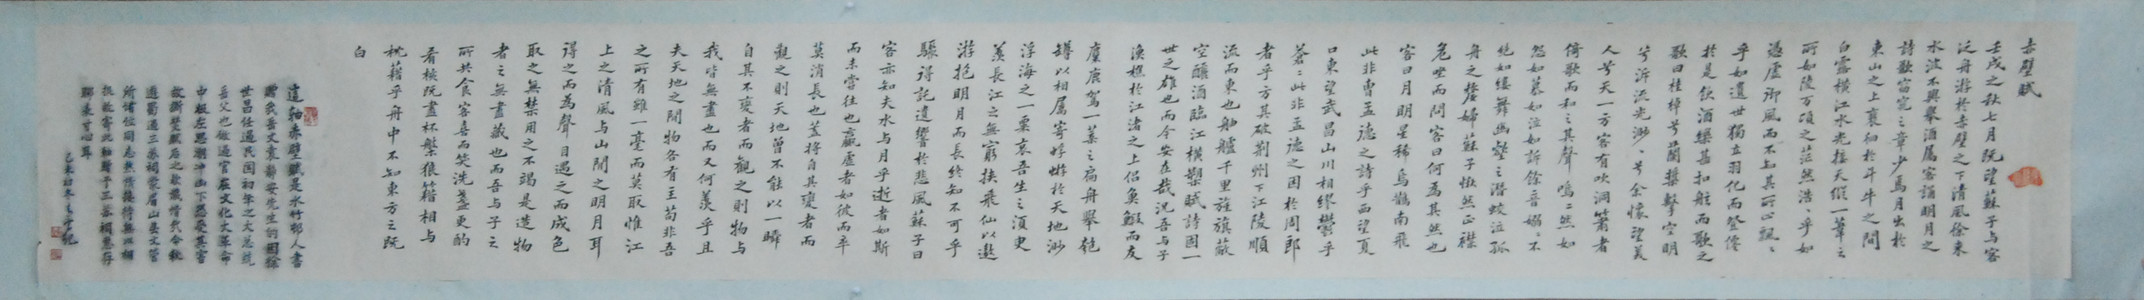 赤壁賦
壬戌之秋七月既望蘇子与客
泛舟游於赤壁之下清風徐来
水波不興舉酒属客誦明月之
詩歌窈窕之章少焉月出於
東山之上裵徊於斗牛之間
白露横江水光接天縱一葦之
所如陵万頃之茫然浩〻乎如
憑虚御風而不知其所止飄〻
乎如遺世獨立羽化而登僊
於是飲酒樂甚扣舷而歌之
歌曰桂棹兮蘭槳擊空明
兮泝流光渺〻兮余懷望美
人兮天一方客有吹洞簫者
倚歌而和之其聲嗚〻然如
怨如慕如泣如訴餘音嫋〻不
絶如縷舞幽壑之潜蛟泣孤
舟之嫠婦蘇子愀然正襟
危坐而問客曰何為其然也
客曰月明星稀烏鵲南飛
此非曹孟德之詩乎西望夏
口東望武昌山川相繆欝乎
蒼〻此非孟德之困於周郎
者乎方其破荆州下江陵順
流而東也舳艫千里旌旗蔽
空釃酒臨江横槊賦詩固一
世之雄也而今安在哉况吾与子
漁樵於江渚之上侣魚鰕而友
麋鹿駕一葉之扁舟舉匏
罇以相属寄蜉蝣於天地渺
浮海之一粟哀吾生之須臾
羡長江之無窮挟飛仙以遨
游抱明月而長終知不可乎
驟得託遺響於悲風蘇子曰
客亦知夫水与月乎逝者如斯
而未嘗往也贏虚者如彼而卒
莫消長也盖将自其變者而
觀之則天地曾不能以一瞬
自其不變者而觀之則物与
我皆無盡也而又何羨乎且
夫天地之間物各有主苟非吾
之所有雖一毫而莫取惟江
上之清風与山間之明月耳
得之而為聲目遇之而成色
取之無禁用之不竭是造物
者之無盡藏也而吾与子之
所共食客喜而笑洗盞更酌
肴核既盡杯盤狼籍相与
枕藉乎舟中不知東方之既
白
這軸赤壁賦是水竹邨人書
世昌任過民国初年之大总统
岳父也做過官在文化大革命